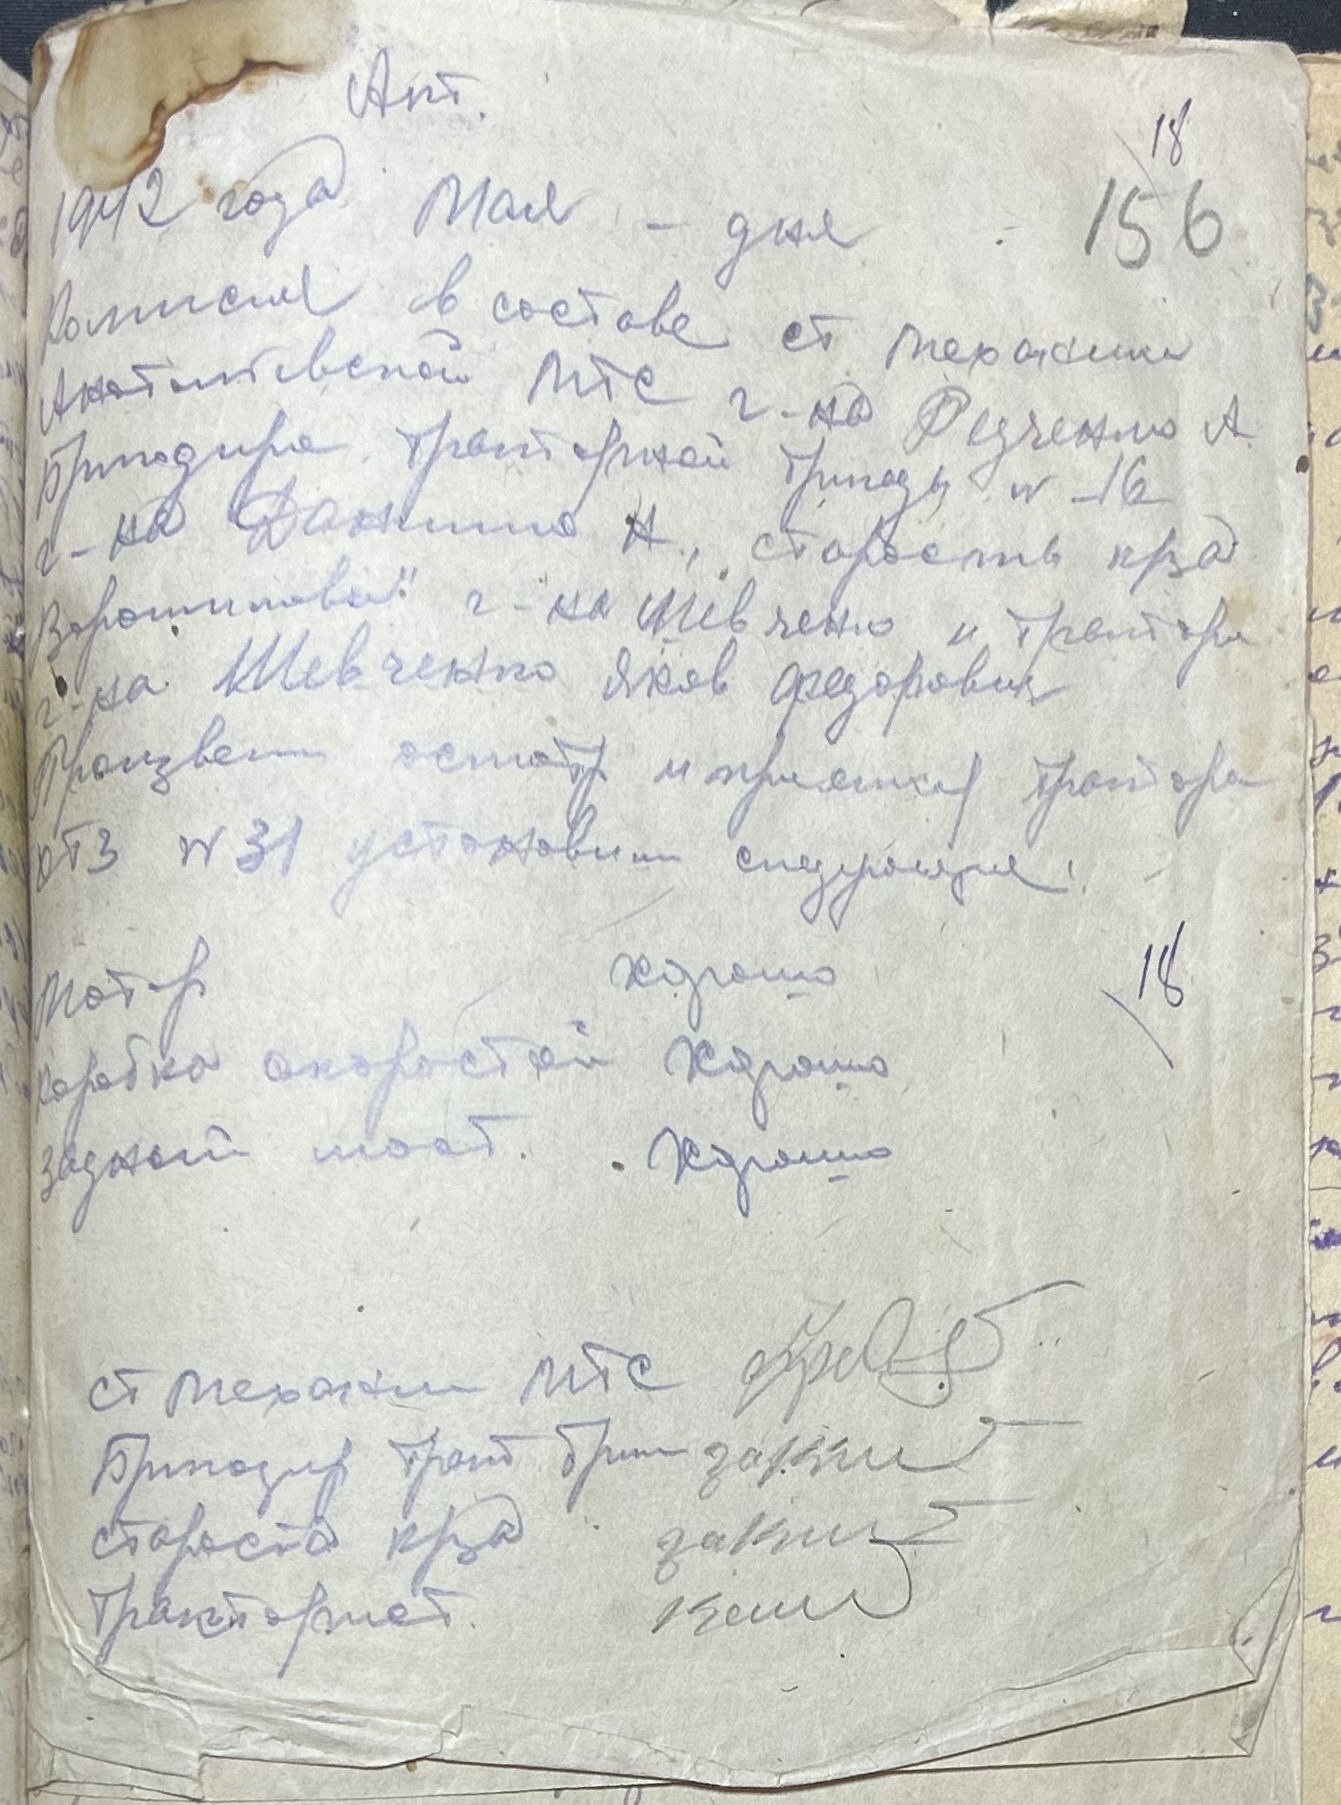 Акт.
18
156
1942 года Мая – дня
Комисия в составе ст механика
Анатолиевской МТС г-на А.
Бригадира тракторной бригады № 16
г-на Данило Н., старосты кза
Ворошилова" г-на Шевченко и трактори
г-на Шевченко Яков Федорович
Произвели осмотр и приемку трактора
ХТЗ № 31 установили следующие:
Мотор хорошо
18
коробка скоростей хорошо
задный мост. хорошо
ст механик МТС
Бригадир тракт бриг
староста кза
тракторист.